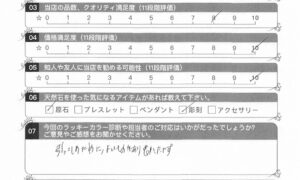 03 当店の品数、クオリティ満足度(11段階評価)
☆ 0 1 2 3 4 5 6 7 8 9 10
04 価格満足度(11段階評価)
☆ 0 1 2 3 4 5 6 7 8 9 10
05 知人や友人に当店を勧める可能性(11段階評価)
☆ 0 1 2 3 4 5 6 7 8 9 10
06 天然石を使った気になるアイテムがあれば教えて下さい。
☑原石 □ブレスレット □ペンダント ☑彫刻 □アクセサリー
07 今回のラッキーカラー診断や担当者のご対応はいかがだったでしょうか?
ご意見やご感想をお聞かせください。